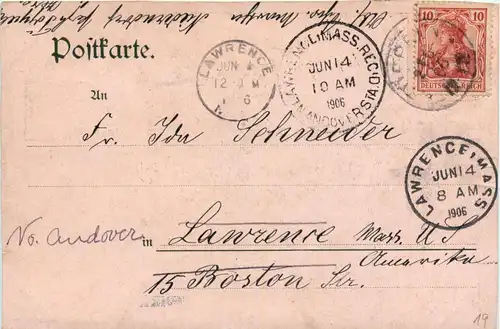 Postkarte.
LAWRENCE
JUN
12 M
6
LAWRENCE, MASS. REC'D
JUN 14
10 AM
1906
NO. ANDOVER STA.
10 10
DEUTSCHES REICH
An
Fr. Ida Schneider
LAWRENCE, MASS.
JUN 14
8 AM
1906
No. Andover
in Lawrence Mass. US
Amerika
15 Boston Str.
19